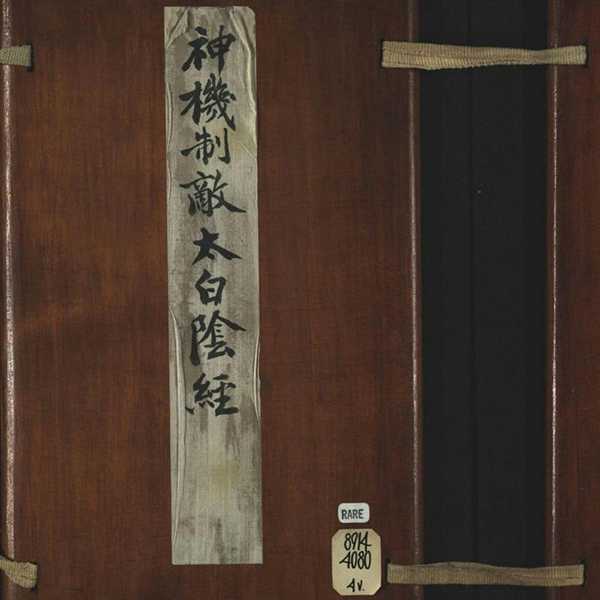 神機制敵太白陰經
RARE
8914
4080
4v.